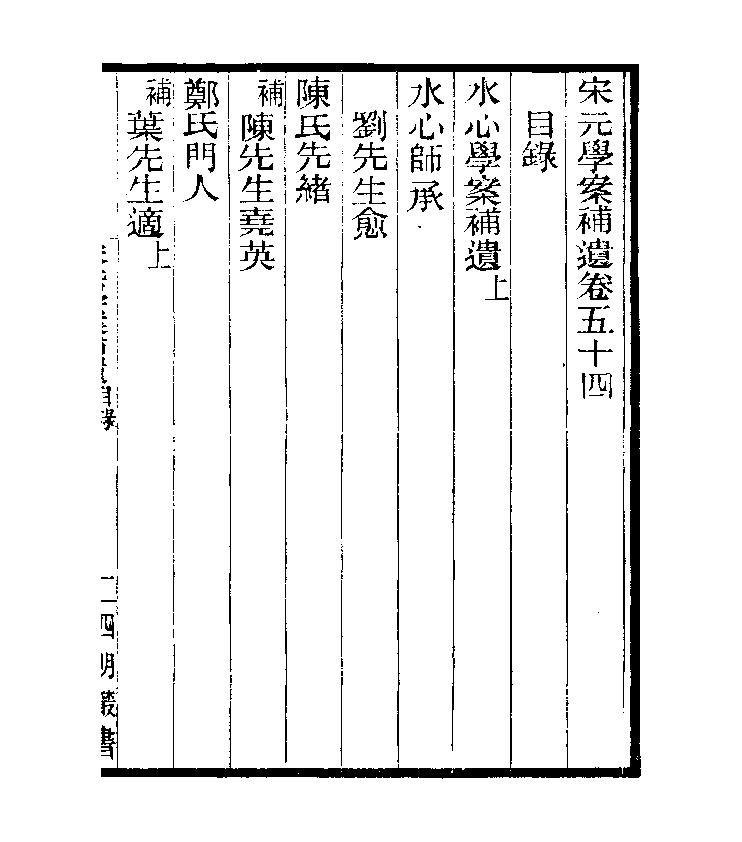 宋元學案補遺卷五十四
目錄
水心學案補遺上
水心師承
劉先生愈
陳氏先緒
補陳先生堯英
鄭氏門人
補葉先生適上
四明叢書